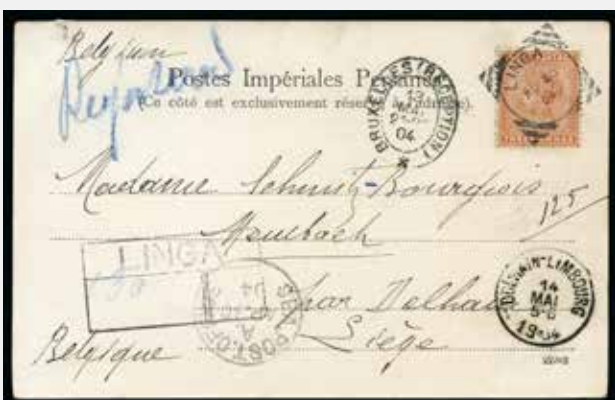 Belgium
Postes Impériales Persanes
(Ce côté est exclusivement réservé à l'adresse).
BRUXELLES (RECEPTION)
13
MAI
04
LINGA
Madame Schmitz-Bourgeois
Membach
125
LINGA
par Dolhain
SEA POST OFFICE
A
04
Liège
Belgique
DOLHAIN-LIMBOURG
14
MAI
5-6
1904